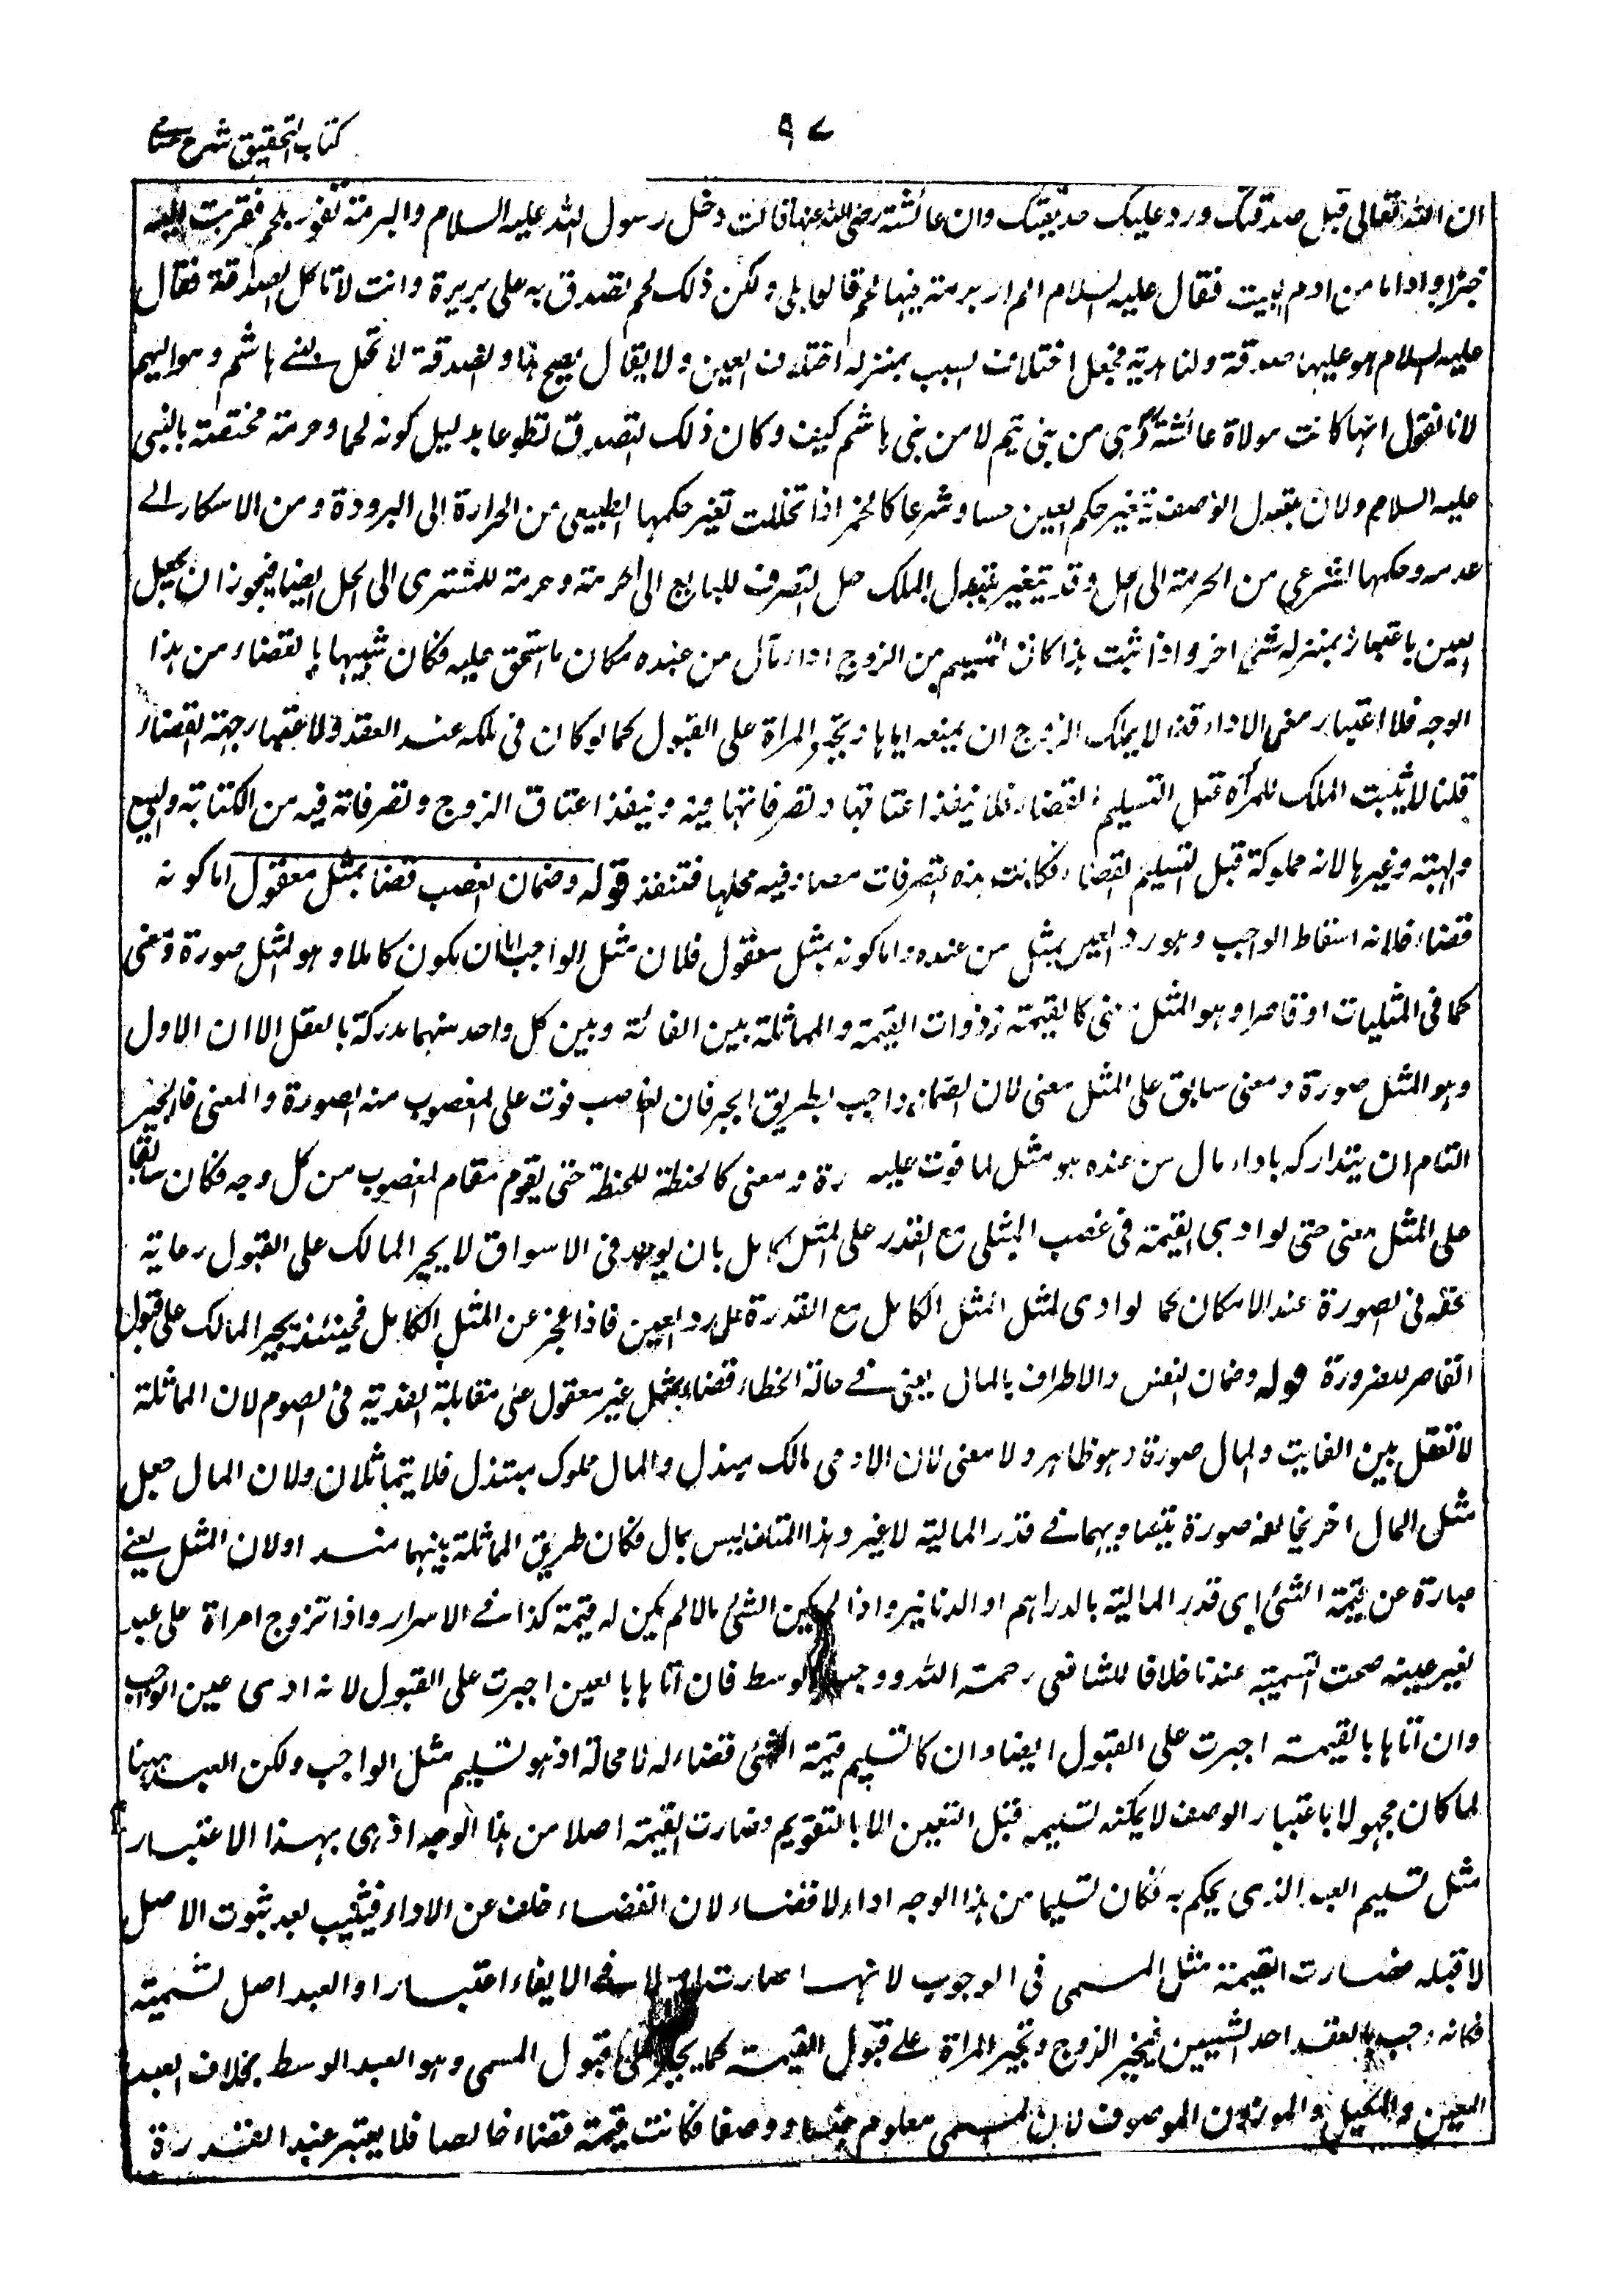 كتاب التحقيق شرح حسامي
٩٧
ان الله تعالى قبل صدقتك ورد عليك حديقتك وان عائشة رضى الله عنها قالت دخل رسول الله عليه السلام والبرمة تفور بلحم فقربت اليه
خبزا واداما من ادم البيت فقال عليه السلام الم ار برمة فيها لحم قالوا بلى ولكن ذلك لحم تصدق به على بريرة وانت لا تاكل الصدقة فقال
عليه السلام هو عليها صدقة ولنا هدية فجعل اختلاف السبب بمنزلة اختلاف العين ولا يقال يصح هذا والصدقة لا تحل لبنے هاشم ومواليهم
لانا نقول انها كانت مولاة عائشة وهى من بنى تيم لا من بنى هاشم كيف وكان ذلك التصدق تطوعا بدليل كونه لحما وحرمته مختصة بالنبى
عليه السلام ولان بتبدل الوصف يتغير حكم العين حسا وشرعا كالخمر اذا تخللت تغير حكمها الطبيعى من الحرارة الى البرودة ومن الاسكار الے
عدمه وحكمها الشرعى من الحرمة الى الحل وقد يتغير بتبدل الملك حل التصرف للبايع الى الحرمة وحرمة للمشترى الى الحل ايضا فيجوز ان يجعل
العين باعتباره بمنزلة شئ اخر واذا ثبت هذا كان التسليم من الزوج اداء مال من عنده مكان ما استحق عليه فكان شبيها بالقضاء من هذا
الوجه فلا اعتبار معنى الاداء قلنا لا يملك الزوج ان يمنعه اياها وتجبر المراة على القبول كما لو كان فى ملكه عند العقد ولاعتبار جهة القضاء
قلنا لا يثبت الملك للمرأة قبل التسليم القضاء فلا ينفذ اعتاقها وتصرفاتها فيه وينفذ اعتاق الزوج وتصرفاته فيه من الكتابة والبيع
والهبة وغيرها لانه مملوكة قبل التسليم القضاء فكانت هذه التصرفات مصادفة محلها فتنفذ قوله وضمان الغصب قضاء بمثل معقول اما كونه
قضاء فلانه اسقاط الواجب وهو رد العين بمثل من عنده واما كونه بمثل معقول فلان مثل الواجب اما ان يكون كاملا وهو المثل صورة ومعنى
كما فى المثليات او قاصرا وهو المثل معنى كالقيمة فى ذوات القيمة والمماثلة بين الفائتة وبين كل واحد منهما مدركة بالعقل الا ان الاول
وهو المثل صورة ومعنى سابق على المثل معنى لان الضمان واجب بطريق الجبر فان الغاصب فوت على المغصوب منه الصورة والمعنى فالجبر
التام ان يتداركه باداء مال من عنده هو مثل لما فوت عليه رة ومعنى كالحنطة للحنطة حتى يقوم مقام المغصوب من كل وجه فكان سابقا
على المثل معنى حتى لو ادى القيمة فى غصب المثلى مع القدر على المثل الكامل بان يوجد فى الاسواق لا يجبر المالك على القبول رعاية
لحقه فى الصورة عند الامكان كما لو ادى المثل المثل الكامل مع القدرة على رد العين فاذا عجز عن المثل الكامل فحينئذ يجبر المالك على قبول
القاصر للضرورة قوله وضمان النفس والاطراف بالمال يعنى فے حالة الخطاء قضاء بمثل غير معقول على مقابلة الفدية فى الصوم لان المماثلة
لا تعقل بين الفايت والمال صورة وهو ظاهر ولا معنى لان الادمى مالك مبتذل والمال مملوك مبتذل فلا يتماثلان ولان المال جعل
مثل المال اخر يخالفه صورة بتساويهما فے قدر المالية لا غير وهذا المتلف ليس بمال فكان طريق المماثلة بينهما منسد اولان المثل يعنے
عبارة عن قيمة الشئ اى قدر المالية بالدراهم او الدنانير واذا لم يكن الشئ مالا لم يكن له قيمة كذا فے الاسرار واذا تزوج امراة على عبد
بغير عينه صحت التسمية عندنا خلافا للشافعى رحمة الله ووجب الوسط فان اتاها بالعين اجبرت على القبول لانه ادى عين الواجب
وان اتاها بالقيمة اجبرت على القبول ايضا وان كا تسليم قيمة الشئ قضاء له لا محالة اذ هو تسليم مثل الواجب ولكن العبد ههنا
لما كان مجهولا باعتبار الوصف لا يمكنه تسليمه قبل التعيين الا بالتقويم وصارت القيمة اصلا من هذا الوجه اذ هى بهذا الاعتبار
مثل تسليم العبد الذى يحكم به فكان تسليما من هذا الوجه اداء لا قضاء لان القضاء خلف عن الاداء فيثبت بعد ثبوت الاصل
لا قبله فصارت القيمة مثل المسمى فى الوجوب لانها صارت اصلا فے الايفاء اعتبارا والعبد اصل تسمية
فكانه وجب بالعقد احد الشيئين فيخير الزوج وتجبر المراة علے قبول القيمة كما يجبر على قبول المسمى وهو العبد الوسط بخلاف العبد
العين والمكيل والموزون الموصوف لان المسمى معلوم جنسا ووصفا فكانت قيمة قضاء خالصا فلا يعتبر عند القدرة